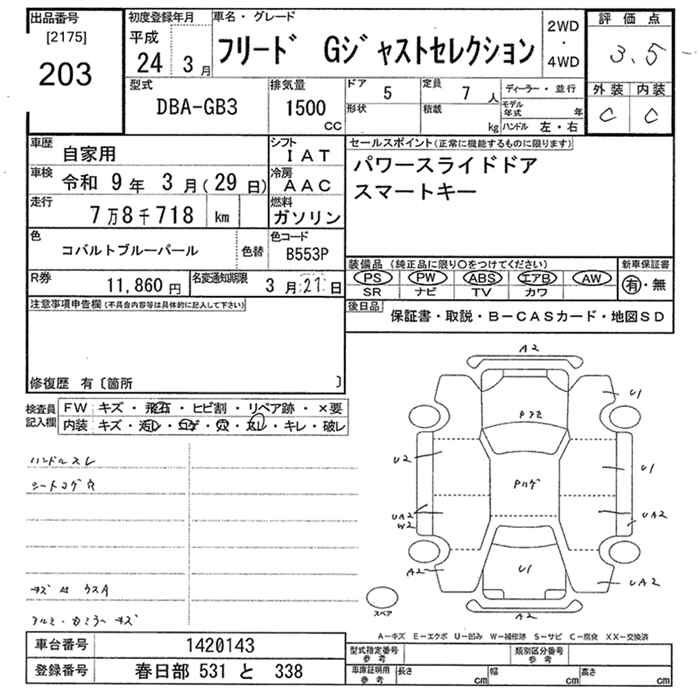 出品番号 初度登録年月 車名・グレード 2WD・4WD 評価点
[2175] 203
平成 24 3月
フリード Gジャストセレクション
3.5
型式 DBA-GB3 排気量 1500 CC
ドア 5 定員 7人 ディーラー・並行
形状 積載 kg モデル年式 年 ハンドル 左・右
外装 内装
C C
車歴 自家用 シフト IAT
セールスポイント(正常に機能するものに限ります)
車検 令和 9年 3月(29日) 冷房 AAC
パワースライドドア
スマートキー
走行 7万8千718 km 燃料 ガソリン
色 コバルトブルーパール 色替 色コード B553P
装備品(純正品に限り○をつけてください) 新車保証書
PS PW ABS エアB AW
SR ナビ TV カワ
有・無
R券 11,860円 名変通知期限 3月21日
注意事項申告欄(不具合内容等は具体的に記入して下さい)
後日品 保証書・取説・B-CASカード・地図SD
修復歴 有〔箇所 〕
検査員記入欄
FW キズ・飛石・ヒビ割・リペア跡・×要
内装 キズ・汚レ・コゲ・穴・スレ・キレ・破レ
ハンドルスレ
シートコゲ穴
A2
U1
U2
U1
UA2
W2
UA2
A2
U1
UA2
A2
スペア
A-キズ E-エクボ U-凹み W-補修跡 S-サビ C-腐食 XX-交換済
車台番号 1420143
型式指定番号 参考 類別区分番号 参考
登録番号 春日部 531 と 338
車庫証明用 参考 長さ cm 幅 cm 高さ cm